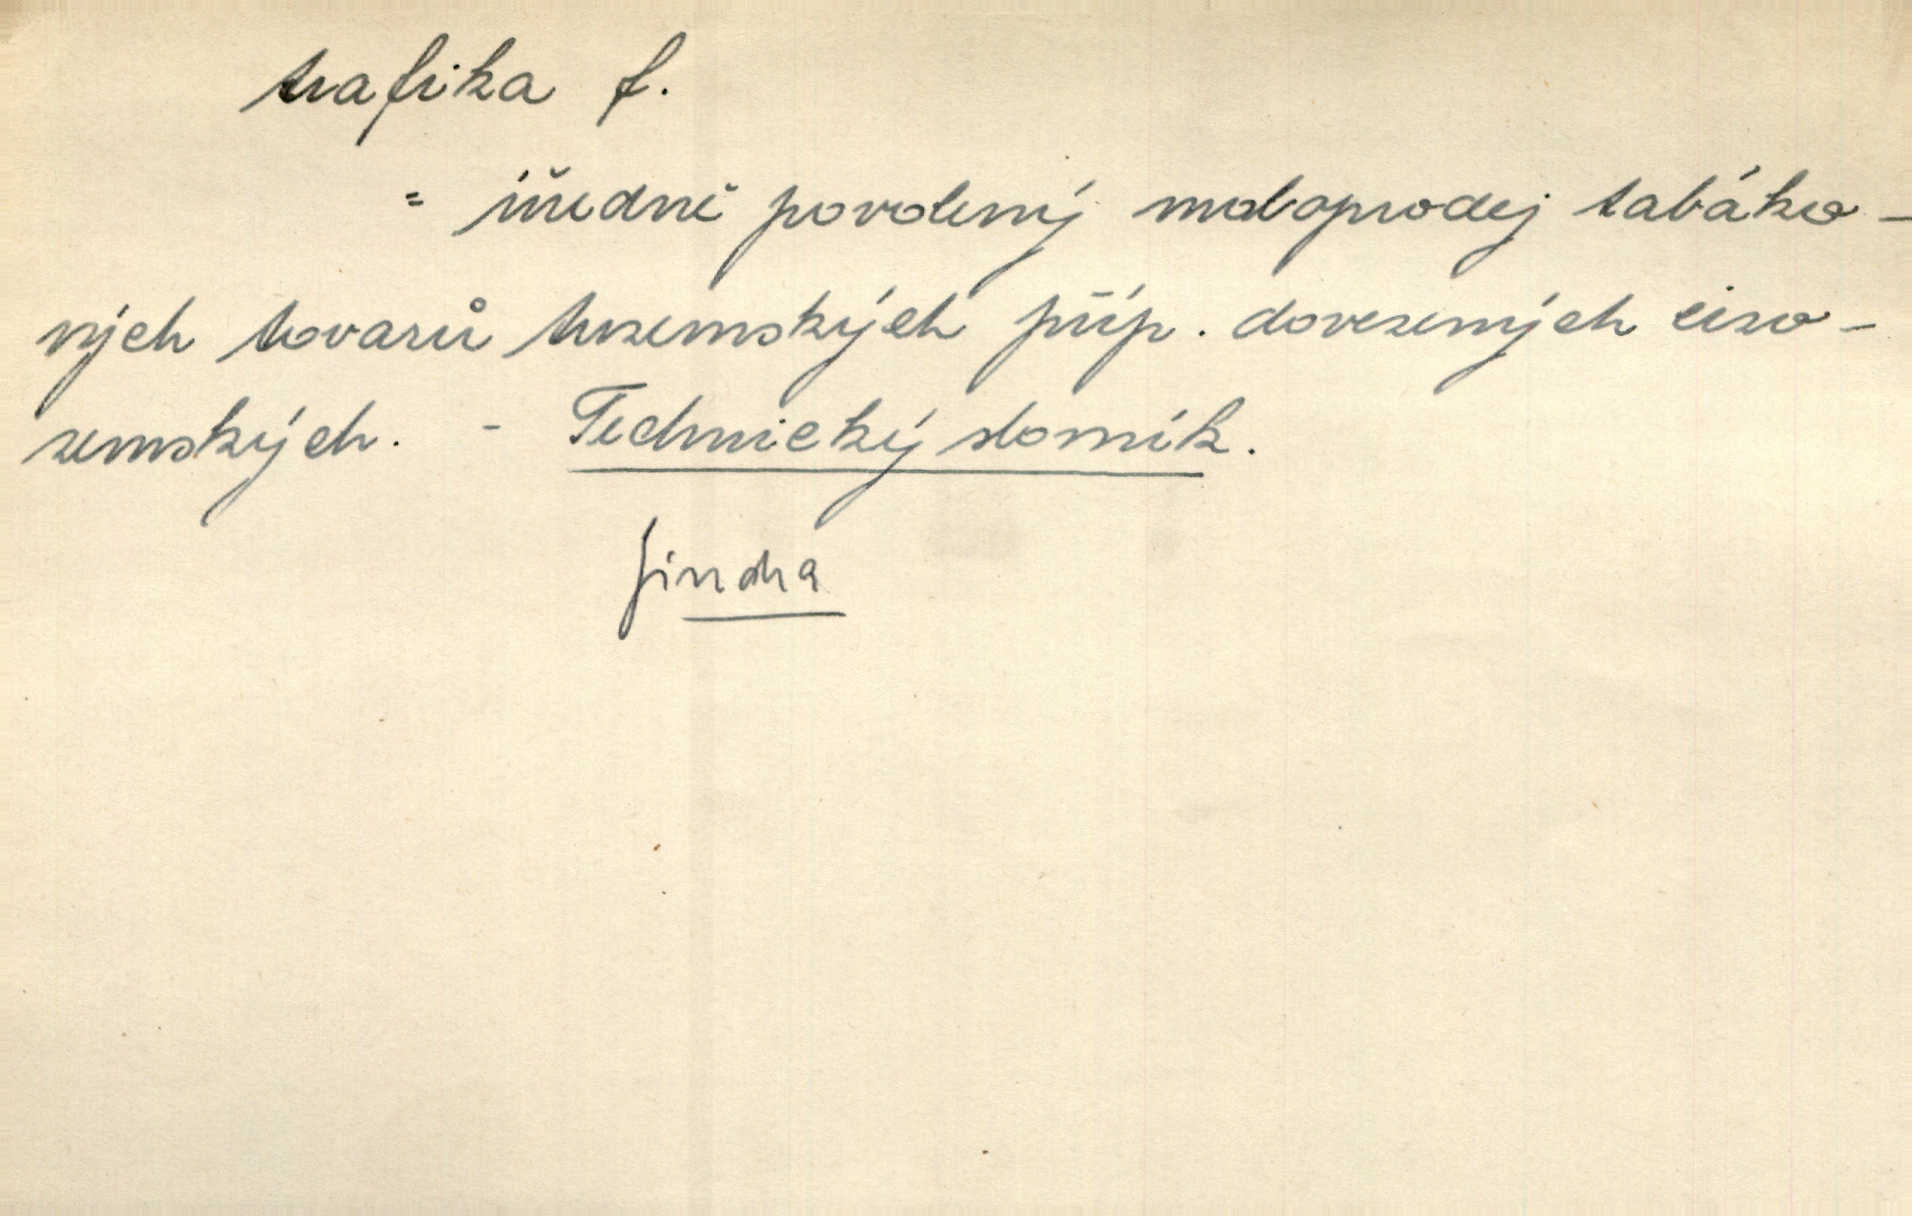 trafika f.
= úředně povolený maloprodej tabáko-
vých tovarů tuzemských příp. dovezených cizo-
zemských. - Technický slovník.
Jindra